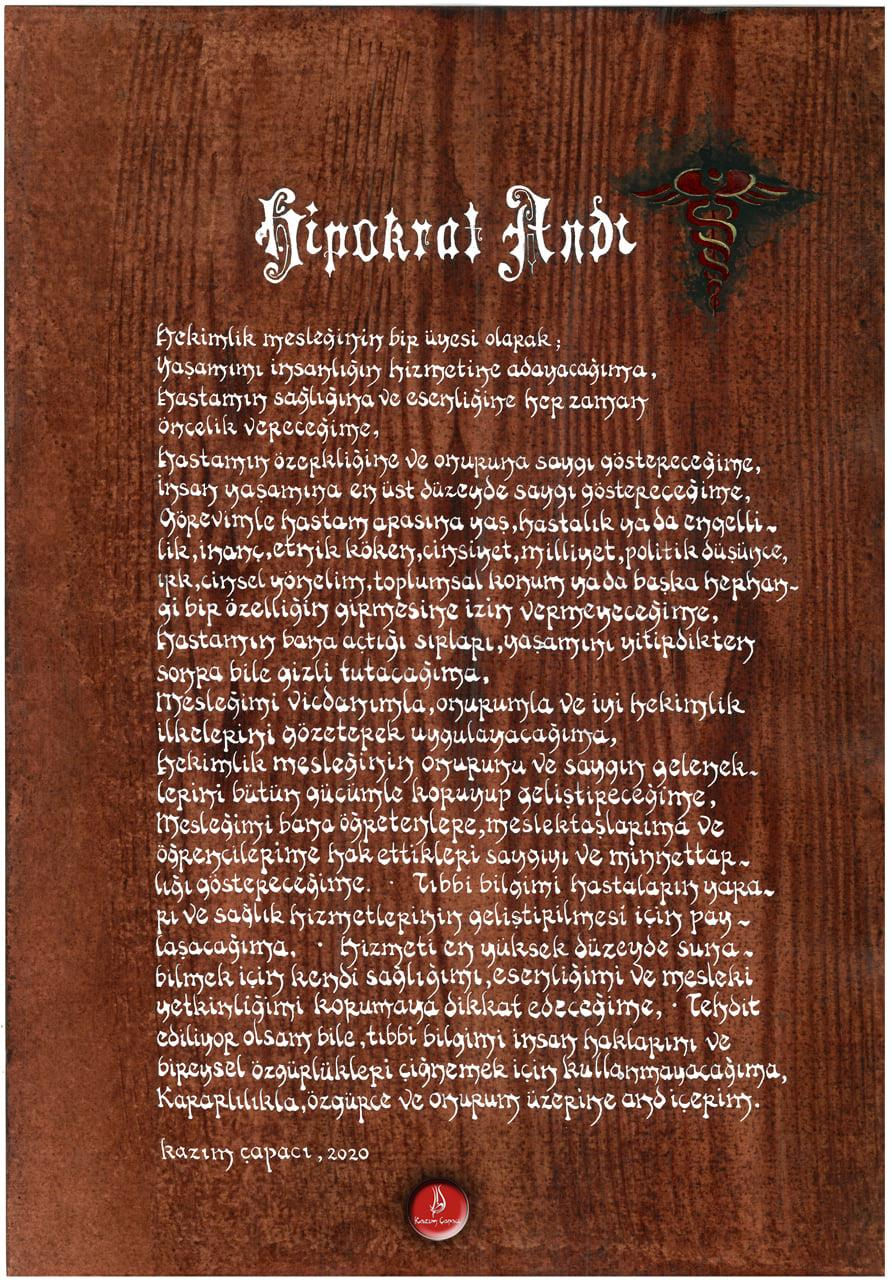 Hipokrat Andı
Hekimlik mesleğinin bir üyesi olarak;
Yaşamımı insanlığın hizmetine adayacağıma,
Hastamın sağlığına ve esenliğine her zaman
öncelik vereceğime,
Hastamın özerkliğine ve onuruna saygı göstereceğime,
İnsan yaşamına en üst düzeyde saygı göstereceğime,
Görevimle hastam arasına yaş, hastalık ya da engelli-
lik, inanç, etnik köken, cinsiyet, milliyet, politik düşünce,
ırk, cinsel yönelim, toplumsal konum ya da başka herhan-
gi bir özelliğin girmesine izin vermeyeceğime,
Hastamın bana açtığı sırları, yaşamını yitirdikten
sonra bile gizli tutacağıma,
Mesleğimi vicdanımla, onurumla ve iyi hekimlik
ilkelerini gözeterek uygulayacağıma,
Hekimlik mesleğinin onurunu ve saygın gelenek-
lerini bütün gücümle koruyup geliştireceğime,
Mesleğimi bana öğretenlere, meslektaşlarıma ve
öğrencilerime hak ettikleri saygıyı ve minnettar-
lığı göstereceğime. · Tıbbi bilgimi hastaların yara-
rı ve sağlık hizmetlerinin geliştirilmesi için pay-
laşacağıma. · Hizmeti en yüksek düzeyde suna-
bilmek için kendi sağlığımı, esenliğimi ve mesleki
yetkinliğimi korumaya dikkat edeceğime, · Tehdit
ediliyor olsam bile, tıbbi bilgimi insan haklarını ve
bireysel özgürlükleri çiğnemek için kullanmayacağıma,
Kararlılıkla, özgürce ve onurum üzerine and içerim.
Kazım Çapacı, 2020
Kazım Çapacı